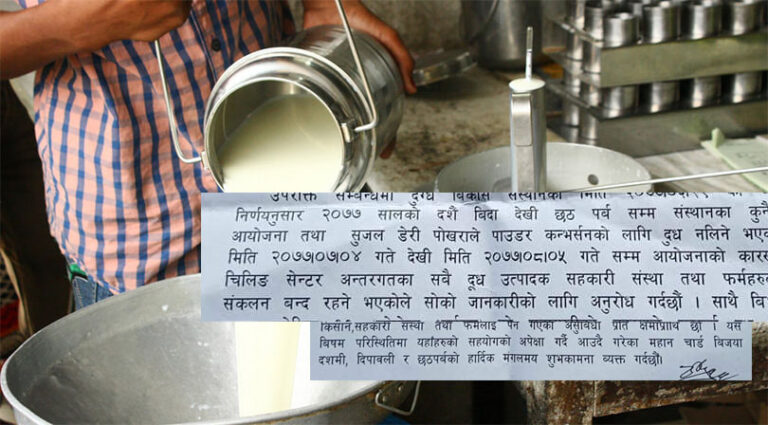 उपरोक्त सम्बन्धमा दुग्ध विकास संस्थानका मिति
निर्णयनुसार २०७७ सालको दशै बिदा देखी छठ पर्व सम्म संस्थानका कुनै
आयोजना तथा सुजल डेरी पोखराले पाउडर कन्भर्सनको लागि दुध नलिने भए
मिति २०७७।०७।०४ गते देखी मिति २०७७।०८।०५ गते सम्म आयोजनाको कार
चिलिङ सेन्टर अन्तरगतका सवै दूध उत्पादक सहकारी संस्था तथा फर्महरु
संकलन बन्द रहने भएकोले सोको जानकारीको लागि अनुरोध गर्दछौं । साथै
किसान,सहकारी संस्था तथा फर्मलाई पर्न गएको असुविधा प्रति क्षमाप्रार्थी छौं । यस
बिषम परिस्थितिमा यहाँहरुको सहयोगको अपेक्षा गर्दै आउदै गरेका महान चार्ड बिजया
दशमी, दिपावली र छठपर्वको हार्दिक मंगलमय शुभकामना व्यक्त गर्दछौं।